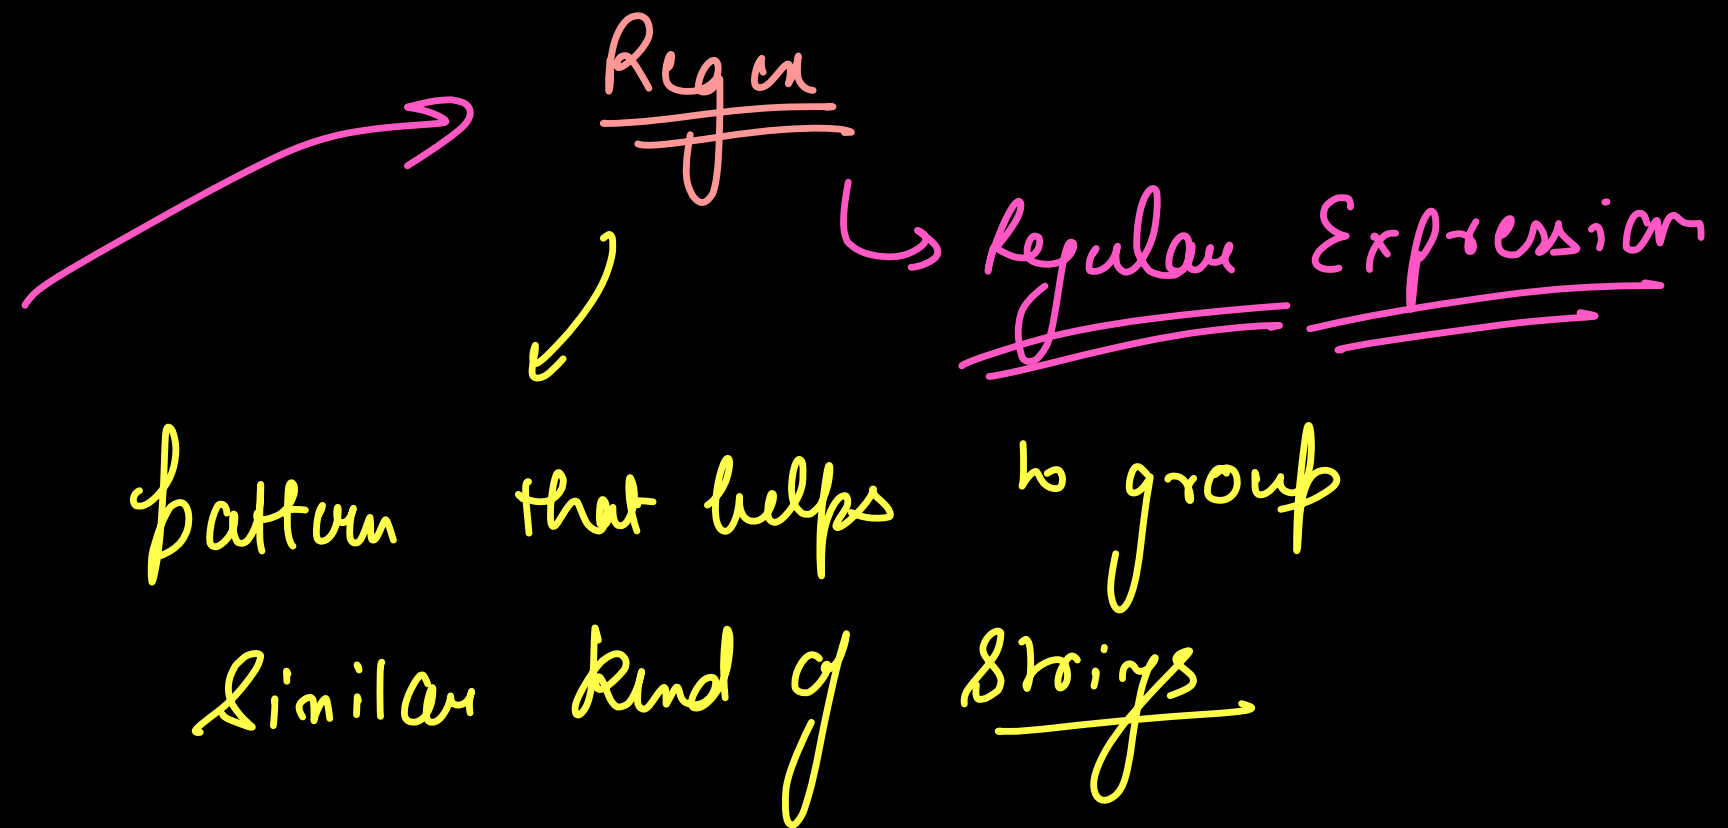 Regex
Regular Expression
pattern that helps to group
similar kind of strings